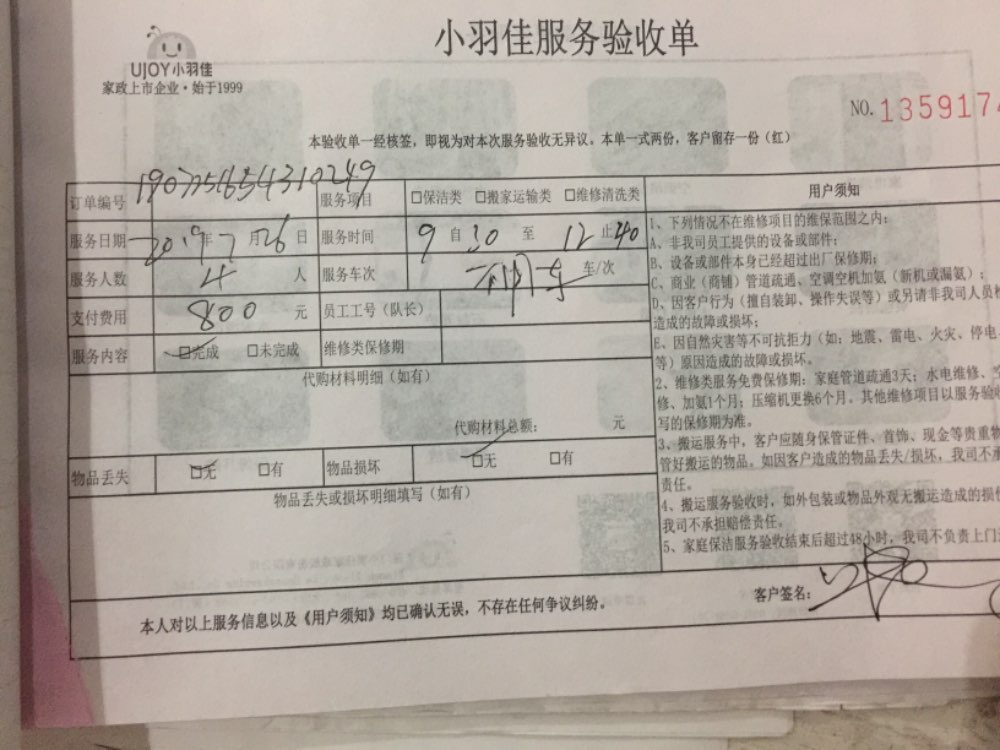 小羽佳服务验收单
UJOY小羽佳
家政上市企业·始于1999
NO. 1359174
本验收单一经核签，即视为对本次服务验收无异议。本单一式两份，客户留存一份（红）
订单编号 服务项目 □保洁类 □搬家运输类 □维修清洗类
服务日期 2019年 7月26日 服务时间 9自30至12止40
服务人数 4 人 服务车次 车/次
支付费用 800 元 员工工号（队长）
服务内容 □完成 □未完成 维修类保修期
代购材料明细（如有）
代购材料总额： 元
物品丢失 □无 □有 物品损坏 □无 □有
物品丢失或损坏明细填写（如有）
用户须知
1、下列情况不在维修项目的维保范围之内：
A、非我司员工提供的设备或部件；
B、设备或部件本身已经超过出厂保修期；
C、商业（商铺）管道疏通、空调空机加氨（新机或漏氨）；
D、因客户行为（擅自装卸、操作失误等）或另请非我司人员
造成的故障或损坏；
E、因自然灾害等不可抗拒力（如：地震、雷电、火灾、停电
等）原因造成的故障或损坏。
2、维修类服务免费保修期：家庭管道疏通3天；水电维修、
修、加氨1个月；压缩机更换6个月。其他维修项目以服务验
写的保修期为准。
3、搬运服务中，客户应随身保管证件、首饰、现金等贵重物
管好搬运的物品。如因客户造成的物品丢失/损坏，我司不承
责任。
4、搬运服务验收时，如外包装或物品外观无搬运造成的损
我司不承担赔偿责任。
5、家庭保洁服务验收结束后超过48小时，我司不负责上门
本人对以上服务信息以及《用户须知》均已确认无误，不存在任何争议纠纷。
客户签名：